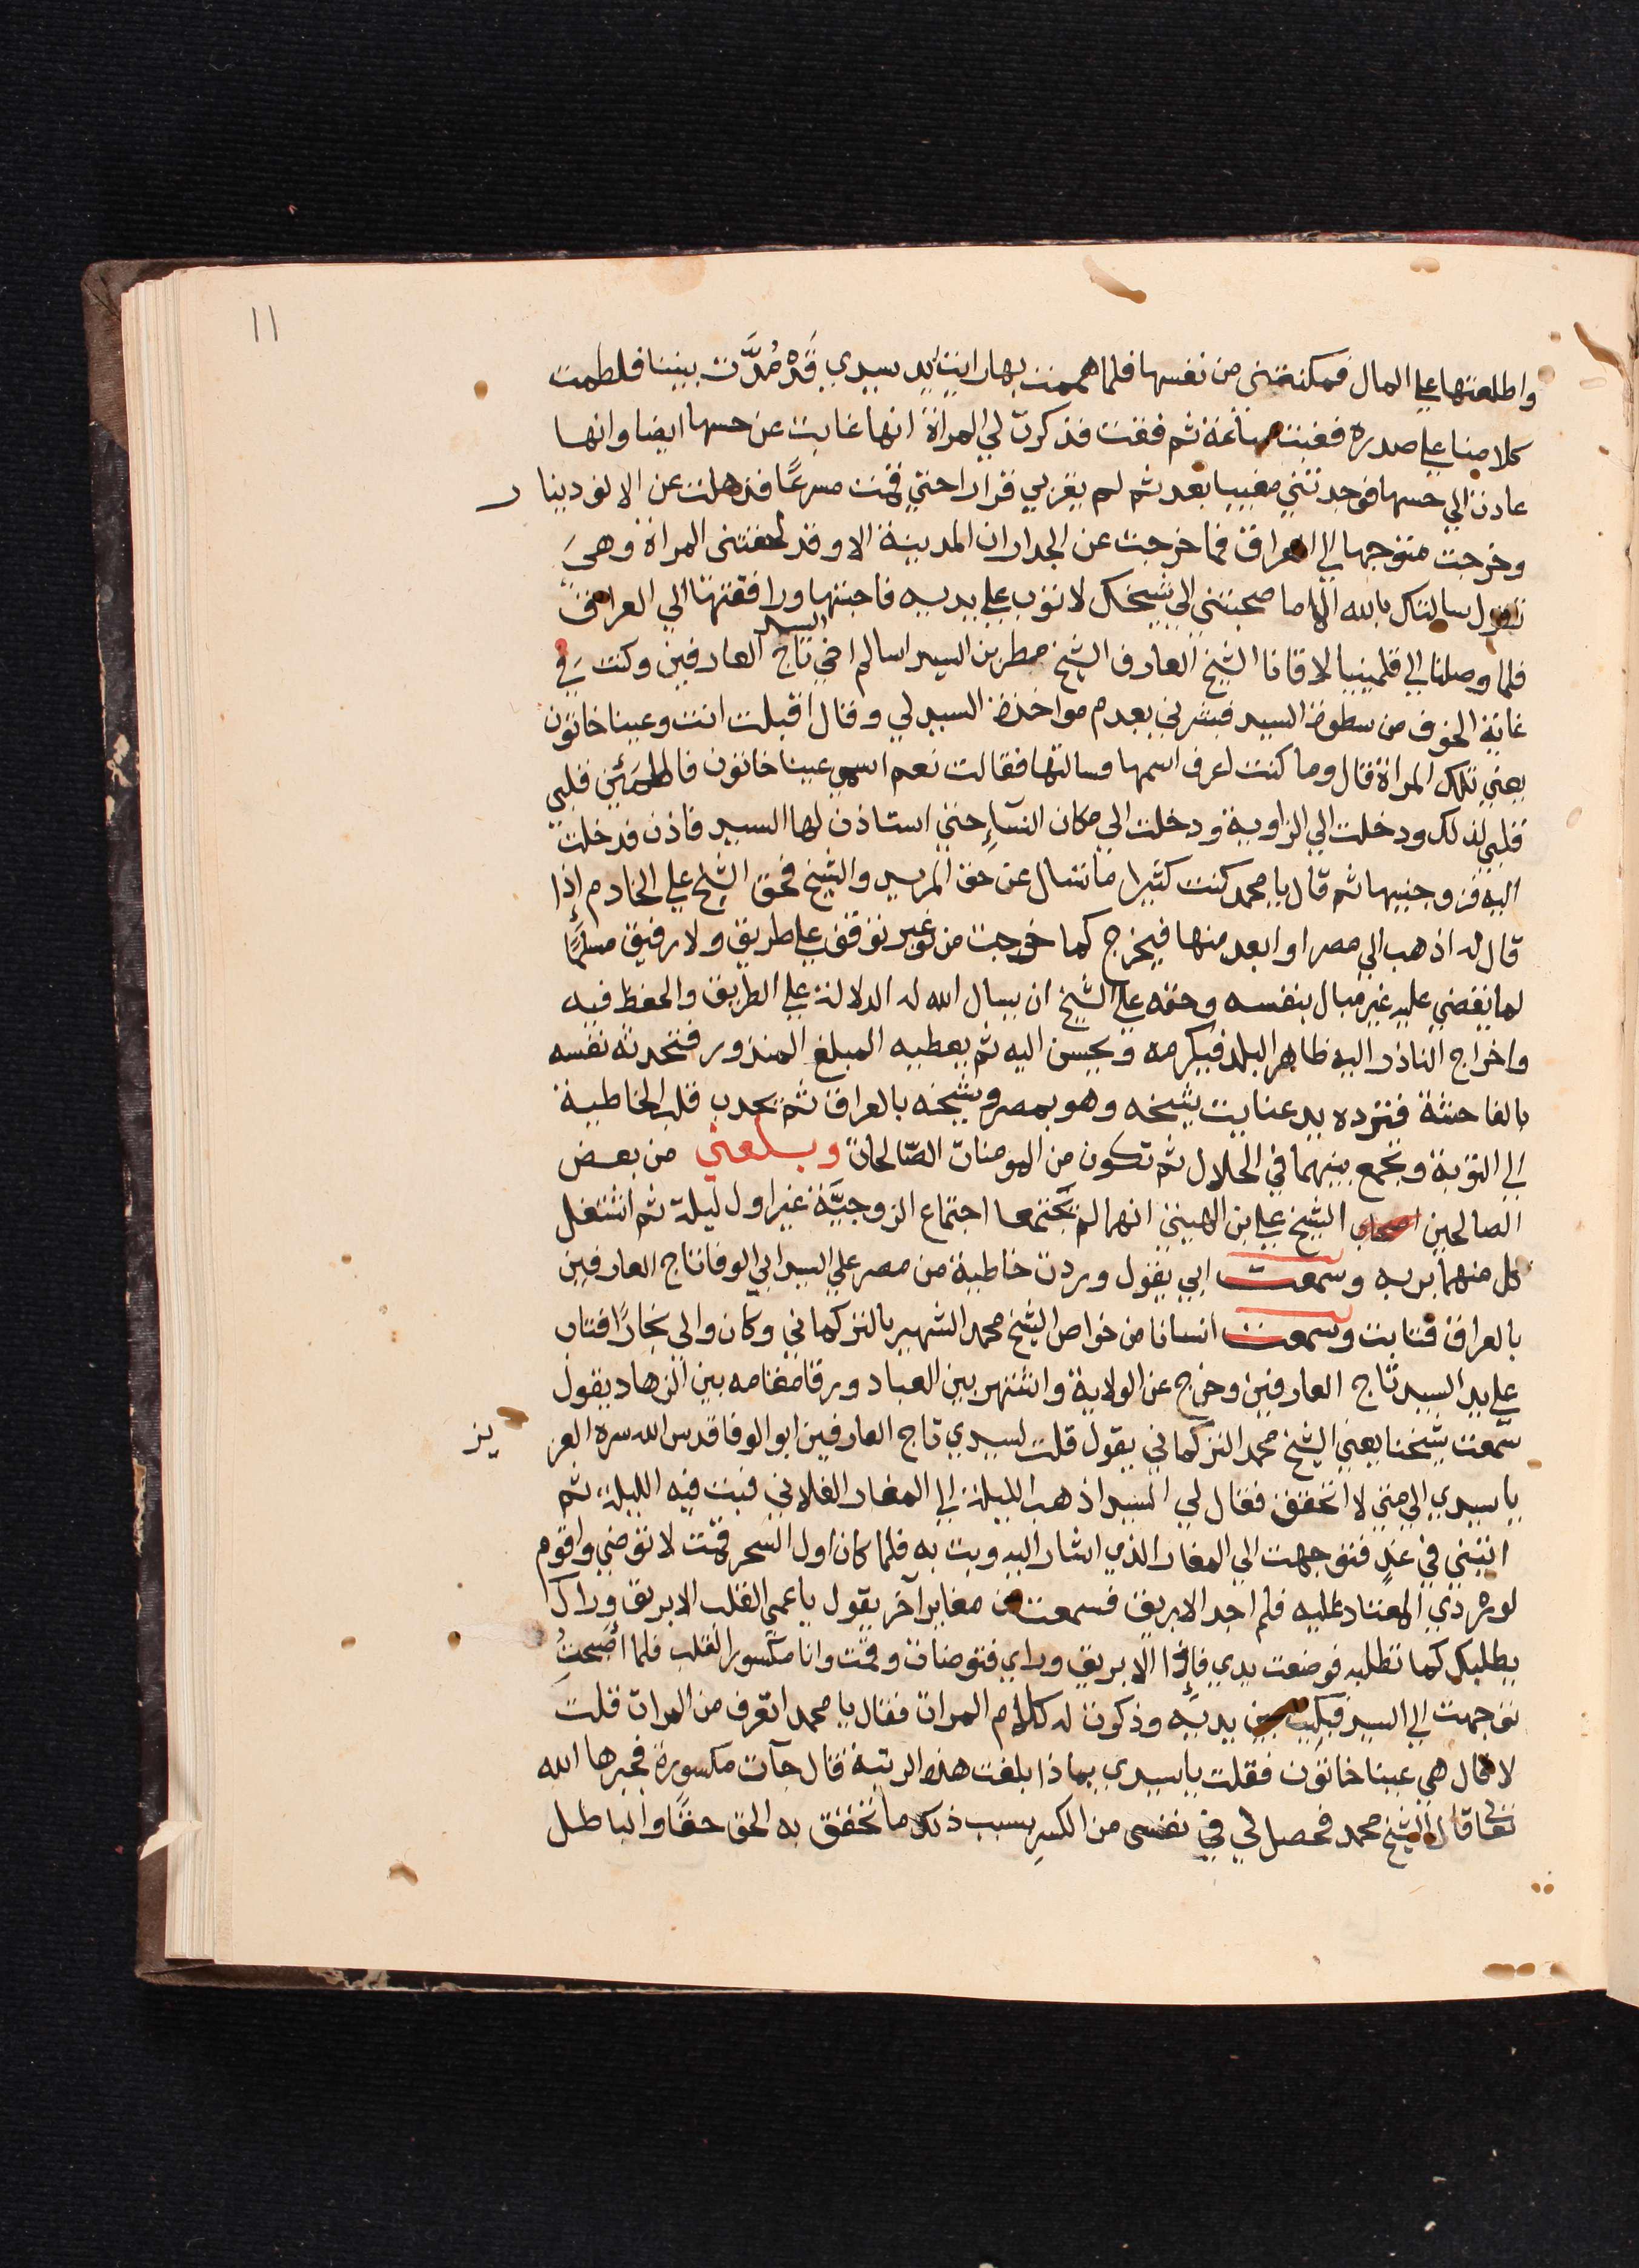 ١١
واطلعتها علي المال فمكنتني من نفسها فلما هممت بها رايت يد سيدي قَدْ مُدَّت بيننا فلطمت
كلا منا علي صدره فغبت ساعة ثم فقت فذكرت لي المراة انها غابت عن حسها ايضا وانها
عادت الي حسها فوجدتني مغيبا بعد ثم لم يقر لي قرارا حتي قمت مسرعًا فذهلت عن الالف دينار
وخرجت متوجها الي العراق فما خرجت عن الجداران المدينة الا وقد لحقتني المراة وهيَ
تقول سالتك بالله الا ما صحبتني الي شيخك لاتوب علي يديه فاجبتها ورافقتها الي العراق
فلما وصلنا الي قلمينيا لاقانا الشيخ العارف الشيخ مطر بن السيد سالم اخي السيد تاج العارفين وكنت في
غاية الخوف من سطوة السيد فبشرني بعدم مواخذة السيد لي وقال اقبلت انت وعيناخاتون
يعني تلك المراة قال وما كنت لعرف اسمها فسالتها فقالت نعم اسمي عيناخاتون فاطمَئن قلبي
قلبي لذلك ودخلت الي الزاوية ودخلت الي مكان النسآءِ حتي استاذن لها السيد فاذن فدخلت
اليه فزوجنيها ثم قال يا محمد كنت كثيرا ما تسال عن حق المريد والشيخ فحق الشيخ علي الخادم إذا
قال له اذهب الي مصر او ابعد منها فيخرج كما خرجت من غير توقف علي طريق ولا رفيق مسلمًا
لما يقضي عليه غير مبال بنفسه وحقه علي الشيخ ان يسال الله له الدلالة علي الطريق والحفظ فيه
واخراج الناذر اليه ظاهر البلد فيكرمه ويحسن اليه ثم يعطيه المبلغ المنذور فتحدثه نفسه
بالفاحشة فترده يد عنايت شيخه وهو بمصر وشيخه بالعراق ثم يجدب قلب الخاطية
الي التوبة ويجمع بينهما في الحلال ثم تكون من المومنات الصّالحات وبلغني من بعض
الصالحين اصحاب الشيخ علي بن الهيتي انهما لم يَجْتمعا اجتماع الزوجيَّة غير اول ليلة ثم اشتغل
كل منهما بربه وسمعت ابي يقول وردت خاطية من مصر علي السيد ابي الوفا تاج العارفين
بالعراق فتابت وسمعت انسانا من خواص الشيخ محمد الشهير بالتركماني وكان والي بخارًا فتاب
علي يد السيد تاج العارفين وخرج عن الولاية واشتهر بين العباد ورقا مقامه بين الزهاد يقول
سمعت شيخنا يعني الشيخ محمد التركماني يقول قلت لسيدي تاج العارفين ابو الوفا قدس الله سره العزيز
يا سيدي الي متي لا اتحقق فقال لي السيد اذهب الليلة الي المغار الفلاني فبت فيه الليلة ثم
ائتني في غدٍ فتوجهت الي المغار الذي اشار اليه وبت به فلما كان اول السحر قمت لاتوضي واقوم
لوردي المعتاد عليه فلم اجد الابريق فسمعت من مغاير آخر يقول يا عمي القلب الابريق وراك
يطلبك كما تطلبه فوضعت يدي فاذا الابريق وراي فتوضات وقمت وانا مكسور القلب فلما اصَبحتُ
توجهت الي السيد فبكيت بين يديه وذكرت له كلام المراة فقال يا محمد اتعرف من المراة قلت
لا قال هي عيناخاتون فقلت يا سيدي بماذا بلغت هذه الرتبة قال جآت مكسورة فجبرها الله
تعالى قال الشيخ محمد فحصل لي في نفسي من الكسر بسبب ذلك ما تحقق به الحق حقًا والباطل